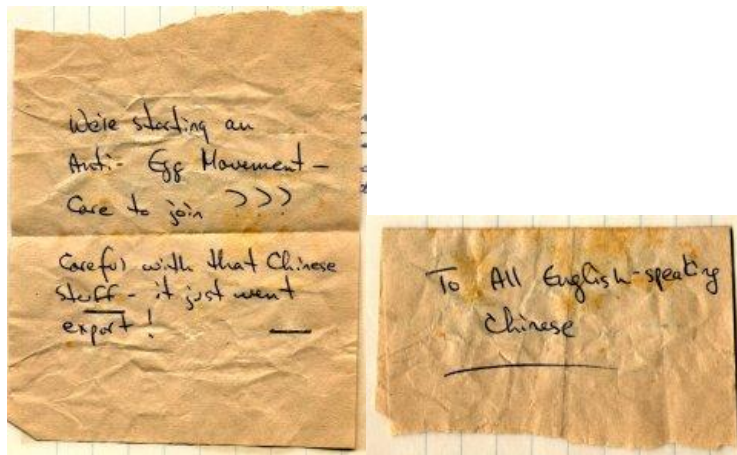 We're starting an
Anti- Egg Movement -
Care to join ???
Careful with that Chinese
stuff - it just went
export !
To All English-speaking
Chinese